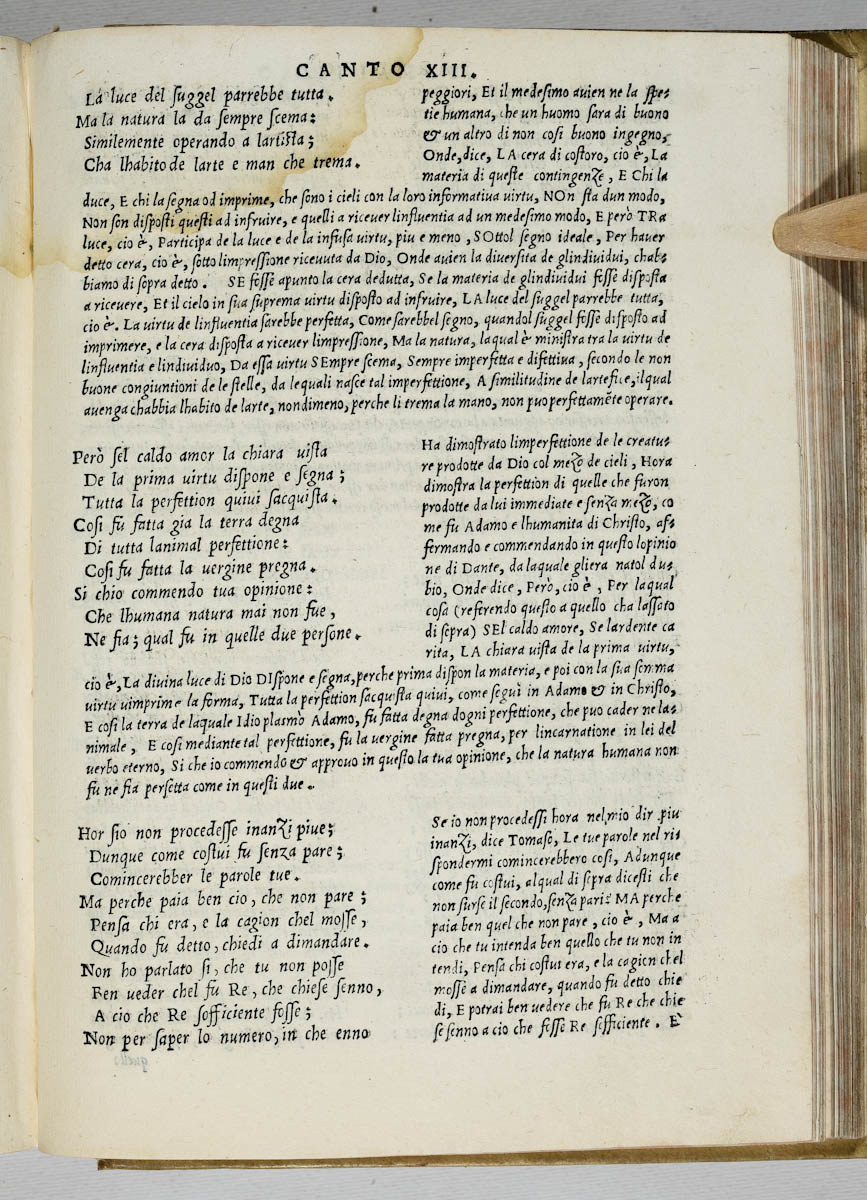 CANTO XIII.
La luce del suggel parrebbe tutta.
Ma la natura la da sempre scema:
Similemente operando a lartista;
Cha lhabito de larte e man che trema.
peggiori, Et il medesimo auien ne la spe-
tie humana, che un huomo sara di buono
& un altro di non cosi buono ingegno,
Onde, dice, LA cera di costoro, cio è, La
materia di queste contingenze, E Chi la
duce, E chi la segna od imprime, che sono i cieli con la loro informatiua uirtu, NOn sta dun modo,
Non son disposti questi ad infruire, e quelli a riceuer linfluentia ad un medesimo modo, E però TRa
luce, cio è, Participa de la luce e de la infusa uirtu, piu e meno, SOttol segno ideale, Per hauer
detto cera, cio è, sotto limpressione riceuuta da Dio, Onde auien la diuersita de glindiuidui, chab-
biamo di sopra detto. SE fosse apunto la cera dedutta, Se la materia de glindiuidui fosse disposta
a riceuere, Et il cielo in sua suprema uirtu disposto ad infruire, LA luce del suggel parrebbe tutta,
cio è. La uirtu de linfluentia sarebbe perfetta, Come sarebbel segno, quandol suggel fosse disposto ad
imprimere, e la cera disposta a riceuer limpressione, Ma la natura, laqual è ministra tra la uirtu de
linfluentia e lindiuiduo, Da essa uirtu SEmpre scema, Sempre imperfetta e difettiua, secondo le non
buone congiuntioni de le stelle, da lequali nasce tal imperfettione, A similitudine de lartefice, ilqual
auenga chabbia lhabito de larte, nondimeno, perche li trema la mano, non puo perfettamẽte operare.
Però sel caldo amor la chiara uista
De la prima uirtu dispone e segna;
Tutta la perfettion quiui sacquista.
Cosi fu fatta gia la terra degna
Di tutta lanimal perfettione:
Cosi fu fatta la uergine pregna.
Si chio commendo tua opinione:
Che lhumana natura mai non fue,
Ne fia; qual fu in quelle due persone.
Ha dimostrato limperfettione de le creatu-
re prodotte da Dio col mezo de cieli, Hora
dimostra la perfettion di quelle che furon
prodotte da lui immediate e senza mezo, co
me fu Adamo e lhumanita di Christo, af-
fermando e commendando in questo lopinio
ne di Dante, da laquale gliera natol du-
bio, Onde dice, Però, cio è, Per laqual
cosa (referendo questo a quello cha lassato
di sopra) SEl caldo amore, Se lardente ca
rita, LA chiara uista de la prima uirtu,
cio è, La diuina luce di Dio DIspone e segna, perche prima dispon la materia, e poi con la sua somma
uirtu uimprime la forma, Tutta la perfettion sacquista quiui, come seguì in Adamo & in Christo,
E cosi la terra de laquale Idio plasmò Adamo, fu fatta degna dogni perfettione, che puo cader ne la-
nimale, E cosi mediante tal perfettione, fu la uergine fatta pregna, per lincarnatione in lei del
uerbo eterno, Si che io commendo & approuo in questo la tua opinione, che la natura humana non
fu ne fia perfetta come in questi due.
Hor sio non procedesse inanzi piue;
Dunque come costui fu senza pare;
Comincerebber le parole tue.
Ma perche paia ben cio, che non pare;
Pensa chi era, e la cagion chel mosse,
Quando fu detto, chiedi a dimandare.
Non ho parlato si, che tu non posse
Ben ueder chel fu Re, che chiese senno,
A cio che Re sofficiente fosse;
Non per saper lo numero, in che enno
Se io non procedessi hora nel mio dir piu
inanzi, dice Tomaso, Le tue parole nel ri-
spondermi comincerebbero cosi, Adunque
come fu costui, alqual di sopra dicesti che
non surse il secondo, senza pari? MA perche
paia ben quel che non pare, cio è, Ma a
cio che tu intenda ben quello che tu non in
tendi, Pensa chi costui era, e la cagion chel
mosse a dimandare, quando fu detto chie
di, E potrai ben uedere che fu Re che chie
se senno a cio che fosse Re sofficiente. È